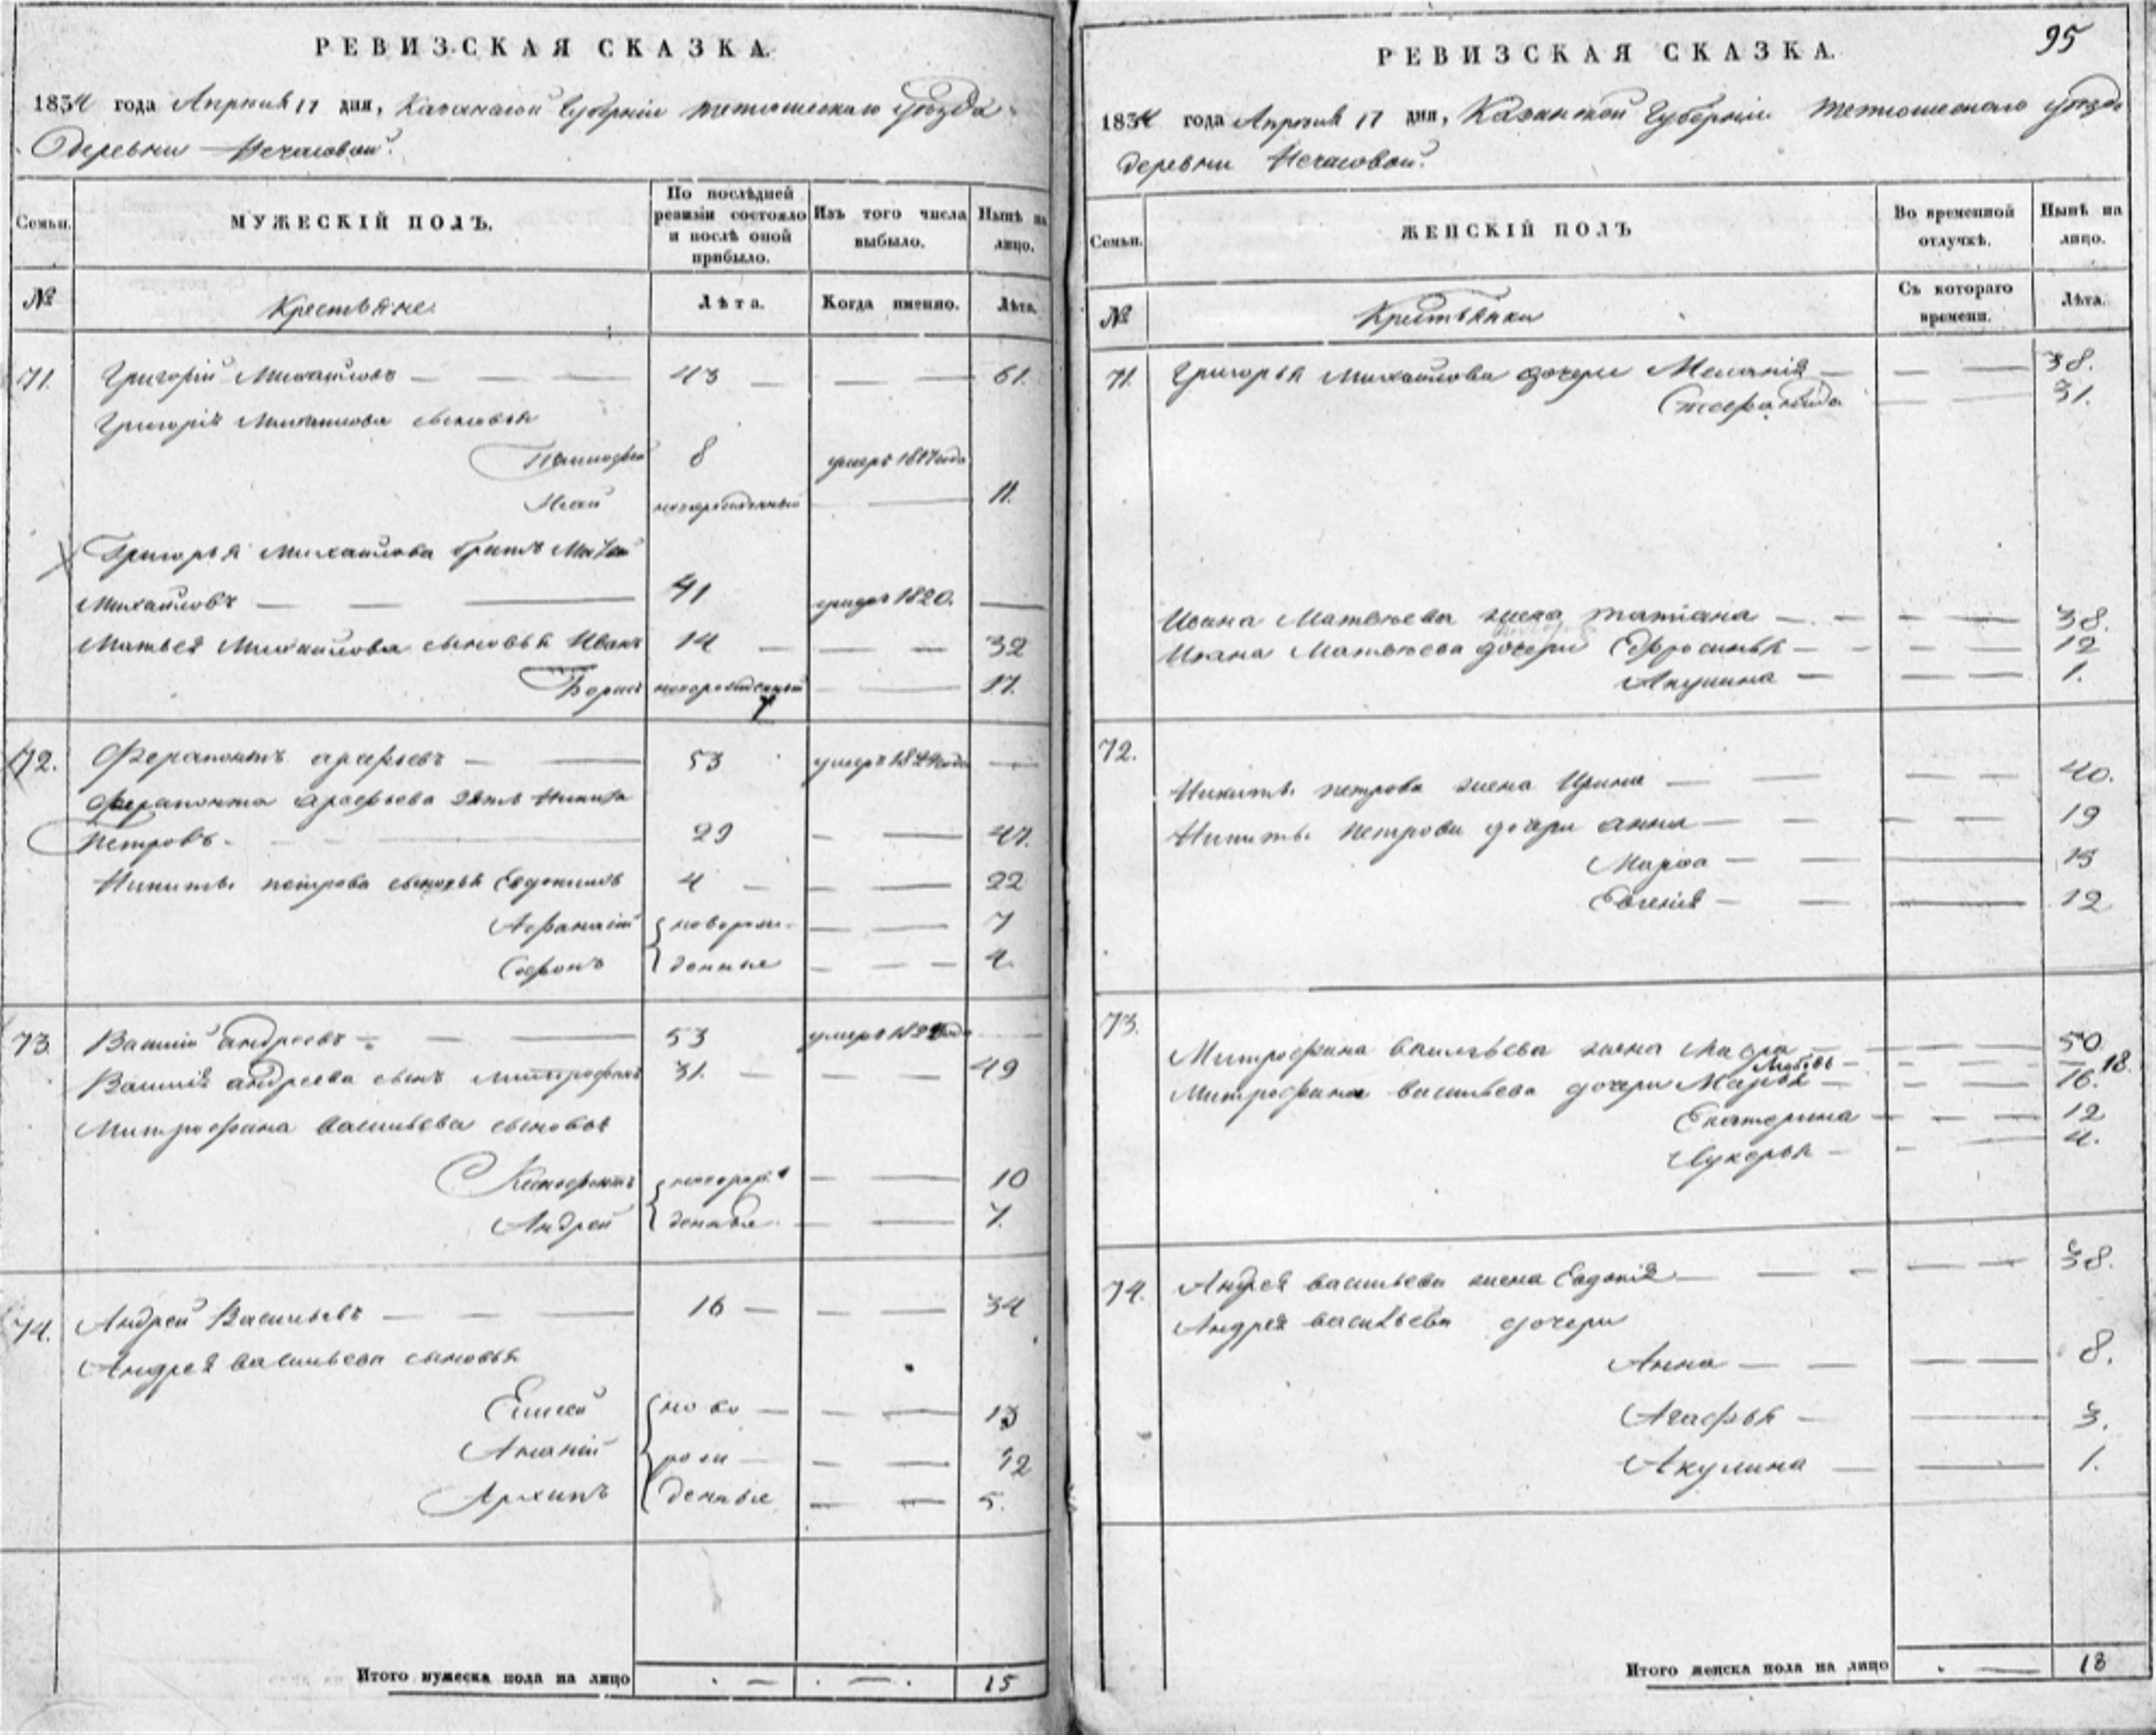 РЕВИЗСКАЯ СКАЗКА.
1834 года Апреля 17 дня, Казанской Губернии Тетюшскаго уезда
деревни Нечасовой.
Семьи.
МУЖЕСКІЙ ПОЛЪ.
По послѣдней ревизіи состояло и послѣ оной прибыло.
Изъ того числа выбыло.
Нынѣ на лицо.
№
Крестьяне
Лѣта.
Когда именно.
Лѣта.
71. Григорій Михайловъ — 43 — 61.
Григорія Михайлова сыновья
8 умеръ 1817 года
Исай новорожденный — 11.
Григорья Михайлова братъ Матвей
Михайловъ — 41 умеръ 1820. —
Матвея Михайлова сыновья Иванъ 14 — 32
Борисъ новорожденный — 17.
72. Ферапонтъ арефьевъ — 53 умеръ 1824 года —
Ферапонта арефьева зять Никита
Петровъ — 29 — 47.
Никиты петрова сыновья Евдокимъ 4 — 22
Афанасій новорож- — 7
Софонъ денные — 4.
73. Василій андреевъ — 53 умеръ года —
Василія андреева сынъ митрофанъ 31. — 49
Митрофана васильева сыновья
Ксенофонтъ новорож — 10
Андрей денные — 7.
74. Андрей Васильевъ — 16 — 34
Андрея васильева сыновья
Елисей ново — 13
Ананій рож — 12
Архипъ денные — 5.
Итого мужеска пола на лицо 15
95
РЕВИЗСКАЯ СКАЗКА.
1834 года Апреля 17 дня, Казанской Губерніи Тетюшескаго уезда
деревни Нечасовой.
Семьи.
ЖЕНСКІЙ ПОЛЪ
Во временной отлучкѣ.
Нынѣ на лицо.
№
Крестьянки
Съ котораго времени.
Лѣта.
71. Григорья Михайлова дочери Меланія — 38.
Степанида — 31.
Ивана Матвеева жена татіана — 38.
Ивана Матвеева дочери Ефросинья — 12
Акулина — 1.
72.
Никиты петрова жена Ирина — 40.
Никиты петрова дочери анна — 19
Марфа — 15
Евгенія — 12
73.
Митрофана васильева жена — 50
Любовь — 18.
Митрофана васильева дочери Марья — 16.
Екатерина — 12
Лукерья — 4.
74. Андрея васильева жена Евдокія — 38.
Андрея васильева дочери
Анна — 8.
Агафья — 3.
Акулина — 1.
Итого женска пола на лицо 18